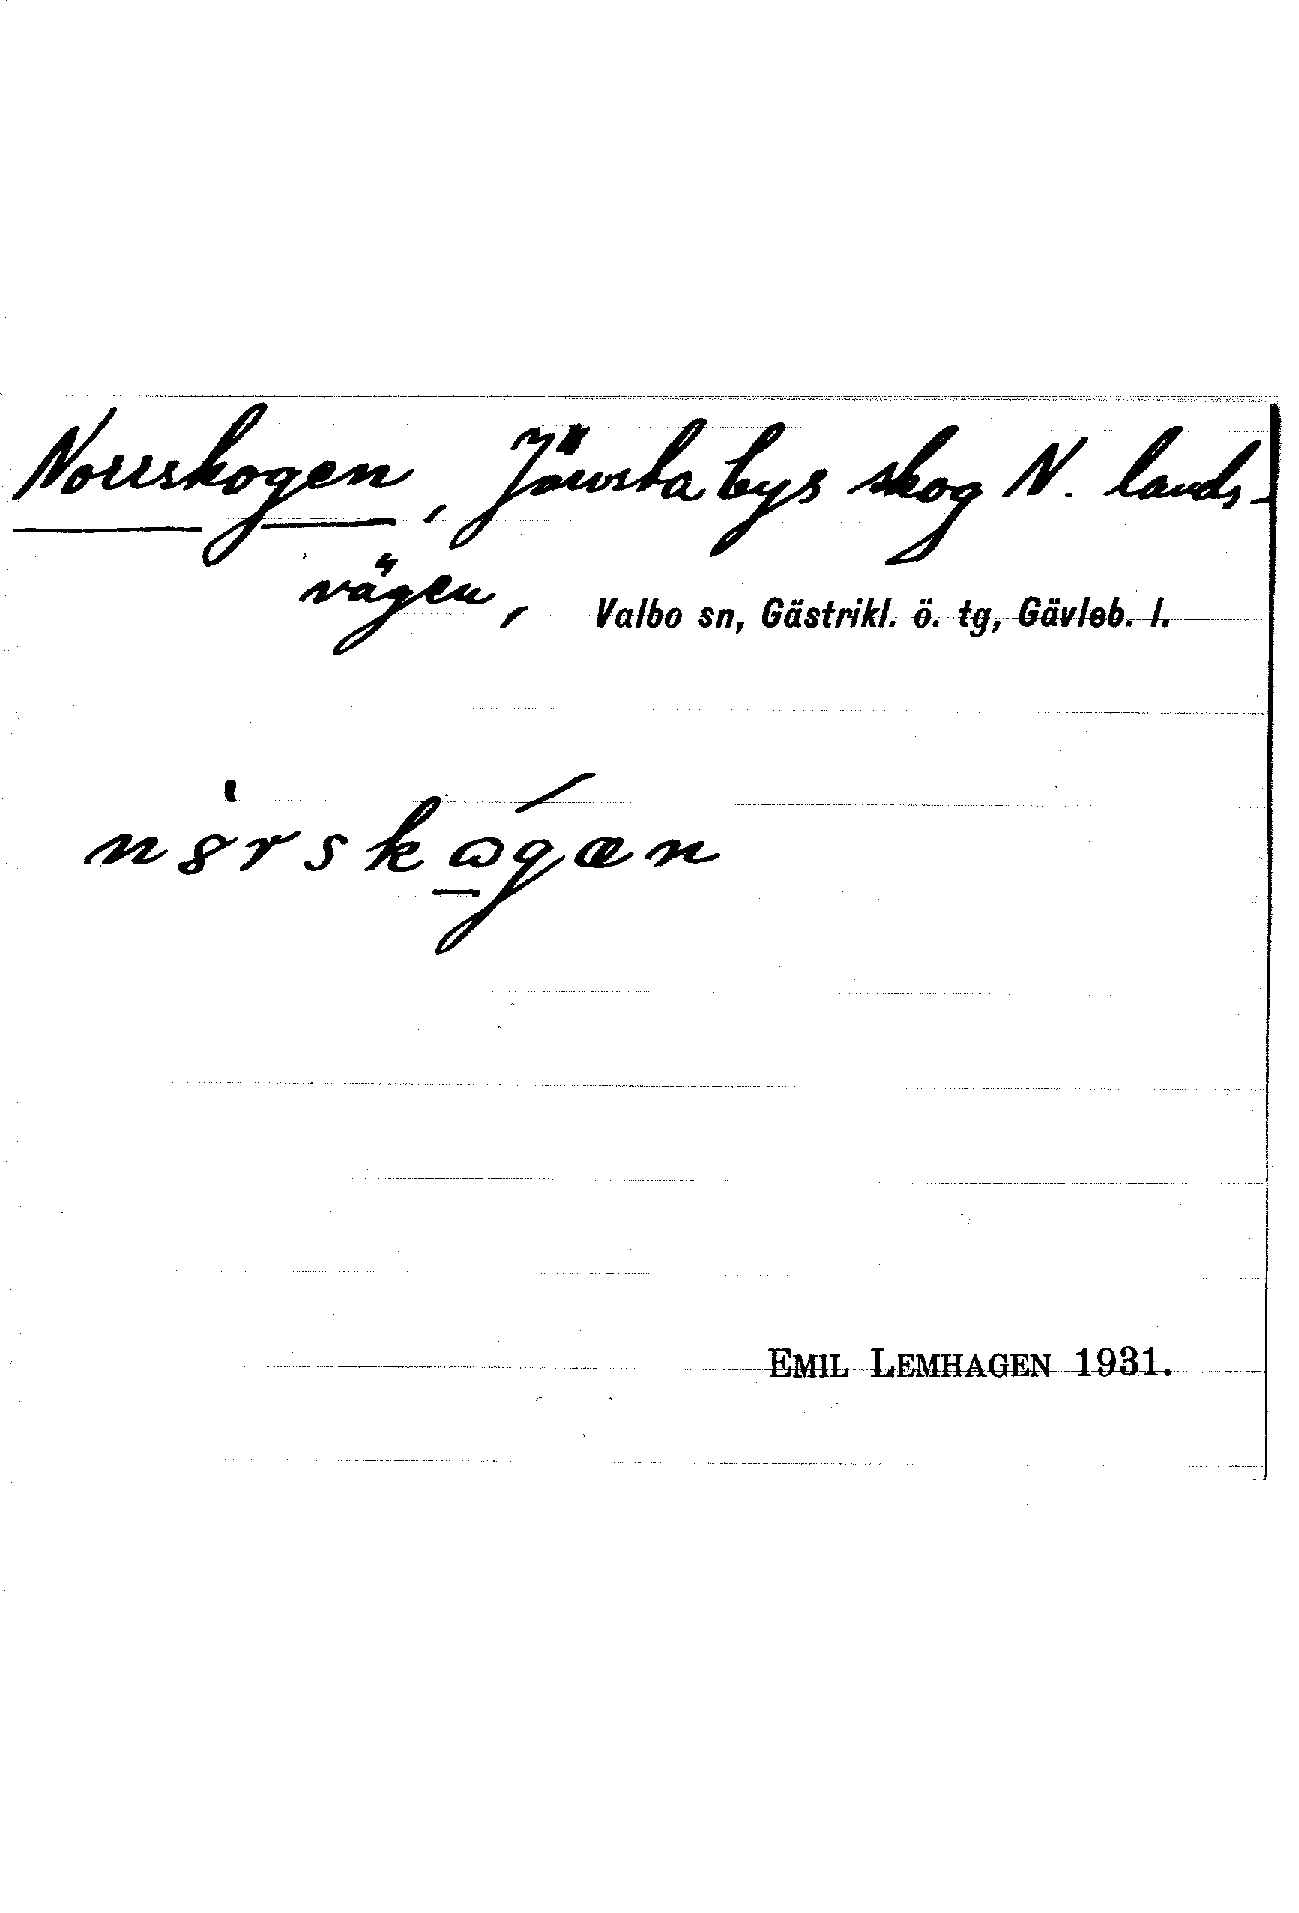 Norrskogen, Järvsta bys skog N. lands-
vägen, Valbo sn, Gästrikl. ö. tg, Gävleb. l.
n8rskωgæn
EMIL LEMHAGEN 1931.